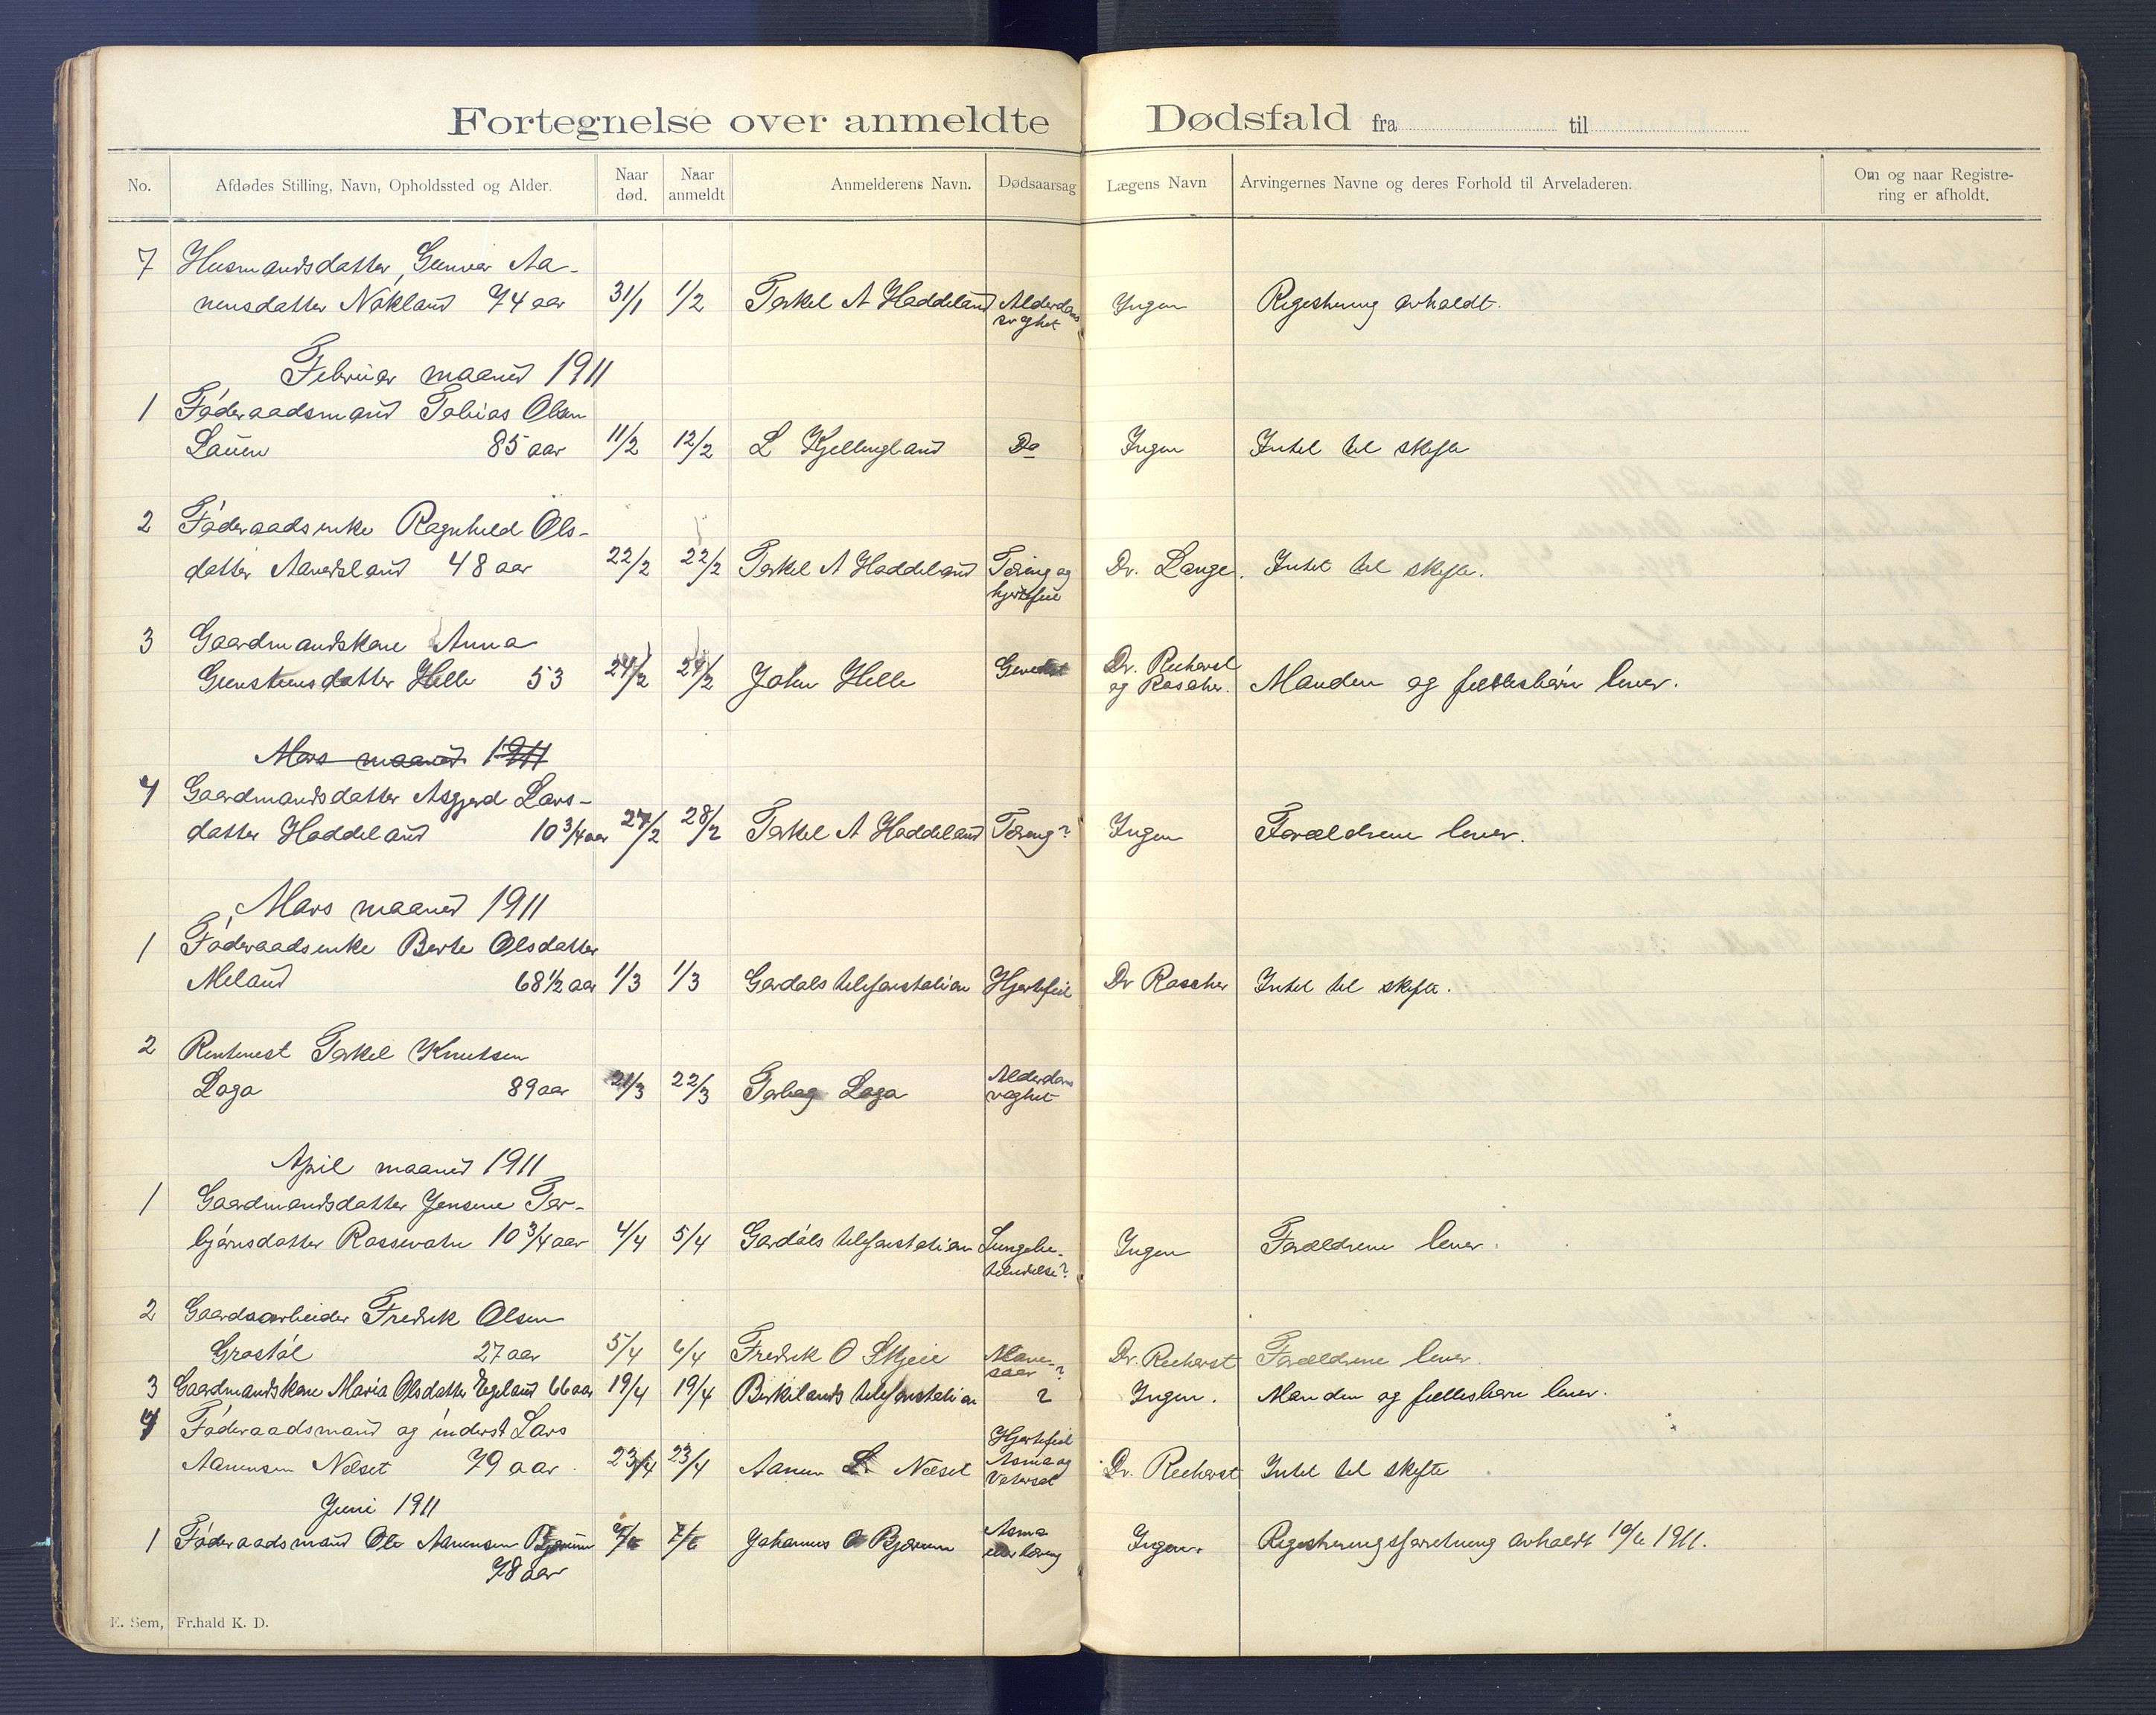 Fortegnelse over anmeldte Dødsfald fra til
No. Afdødes Stilling, Navn, Opholdssted og Alder. Naar død. Naar anmeldt Anmelderens Navn. Dødsaarsag Lægens Navn Arvingernes Navne og deres Forhold til Arveladeren. Om og naar Registrering er afholdt.
7 Husmandsdatter, Gunvor Aa-
nensdatter Nökland 74 aar 31/1 1/2 Torkel A Haddeland Alderdoms Ingen Registrering avholdt.
svaghet
Februar maaned 1911
1 Föderaadsmand Tobias Olsen
Lauen 85 aar 11/2 12/2 L Kjellingland Do Ingen Intet til skifte
2 Föderaadsenke Ragnhild Ols-
datter Aavedsland 48 aar 22/2 22/2 Torkel A Haddeland Tæring og Dr. Lange. Intet til skifte.
hjertefeil
3 Gaardmandskone Anna
Gunstensdatter Helle 53 24/2 24/2 John Helle Dr. Reehorst
og Rascher. Manden og fællesbörn lever.
Mars maaned 1911
4 Gaardmandsdatter Asgjerd Lars-
datter Haddeland 10 3/4 aar 27/2 28/2 Torkel A Haddeland Tæring? Ingen Forældrene lever.
Mars maaned 1911
1 Föderaadsenke Berte Olsdatter
Meland 68 1/2 aar 1/3 1/3 Gardals telefonstation Hjertefeil Dr Rascher Intet til skifte.
2 Rentenest Torkel Knutsen
Loga 89 aar 21/3 22/3 Torbag Loga Alderdoms
vaghet
April maaned 1911
1 Gaardmandsdatter Jensene Tor-
björnsdatter Rossevatn 10 3/4 aar 4/4 5/4 Gardals telefonstation Lungebe- Ingen Forældrene lever.
tendelse?
2 Gaardsarbeider Fredrik Olsen
Grostöl 27 aar 5/4 6/4 Fredrik O Skjeie Mave- Dr. Reehorst Forældrene lever.
saar ?
3 Gaardmandskone Maria Olsdatter Egeland 66 aar 19/4 19/4 Birkelands telefonstation ? Ingen. Manden og fællesbörn lever.
4 Föderaadsmand og inderst Lars
Aanensen Nelset 79 aar 23/4 23/4 Aanen L. Nelset Hjertefeil Asma og Vatersot Dr. Reehorst Intet til skifte
Juni 1911
1 Föderaadsmand Ole Aanensen Bjærum 7/6 7/6 Johannes O Bjærum Asma eller tæring Ingen. Registreringsforretning avholdt 10/6 1911.
78 aar
E. Sem, Fr.hald K. D.